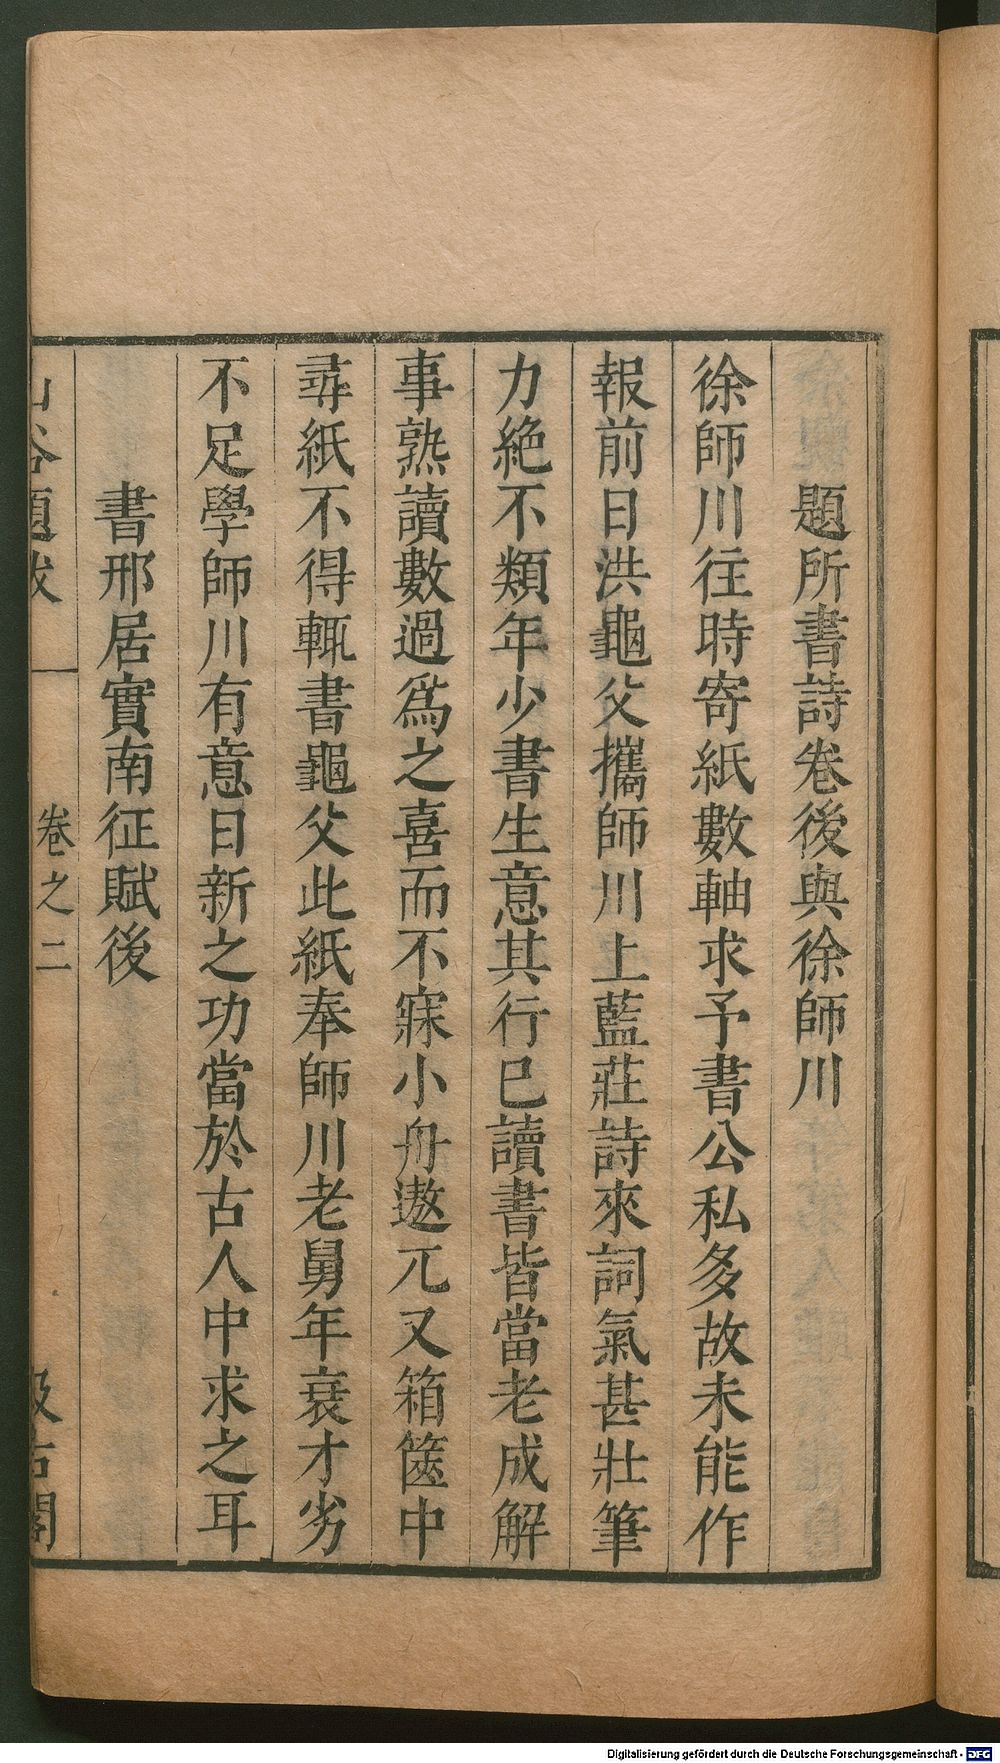 題所書詩卷後與徐師川
徐師川往時寄紙數軸求予書公私多故未能作
報前日洪龜父攜師川上藍莊詩來詞氣甚壯筆
力絶不類年少書生意其行已讀書皆當老成解
事熟讀數過爲之喜而不寐小舟遨兀又箱篋中
尋紙不得輒書龜父此紙奉師川老舅年衰才劣
不足學師川有意日新之功當於古人中求之耳
書邢居實南征賦後
山谷題跋
卷之二
汲古閣
Digitalisierung gefördert durch die Deutsche Forschungsgemeinschaft - DFG